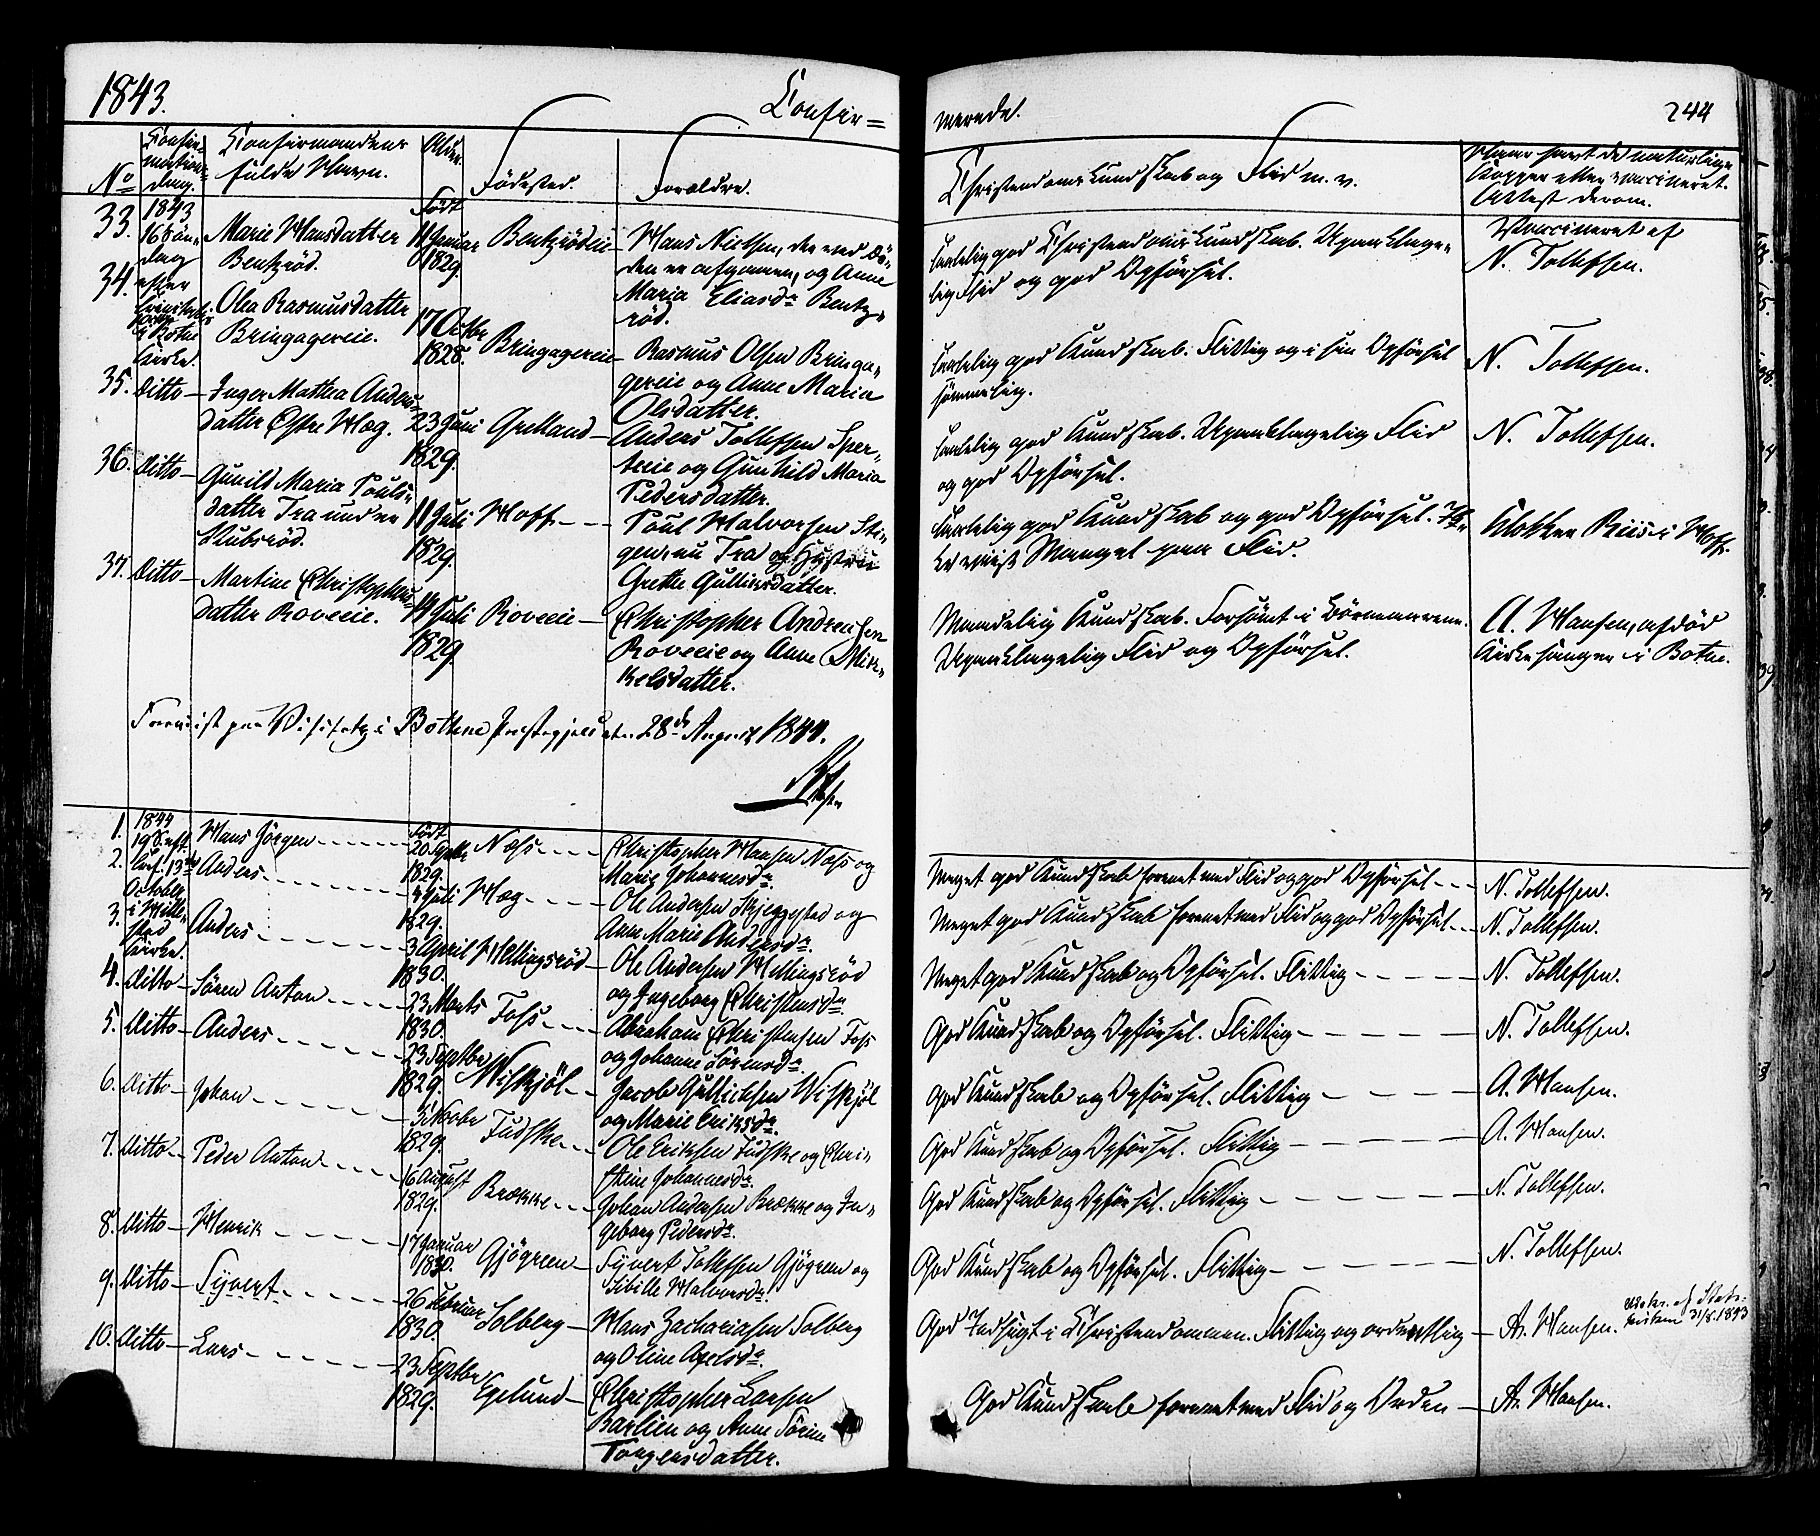 1843.
Confir=
merede.
244
No
Confir-
mations-
dag.
Confirmandens
fulde Navn.
Alder.
Fødested.
Forældre.
Christendomskundskab og Flid m. v.
Naar havt de naturlige
Kopper eller vaccineret.
Attest derom.
33.
1843
16 Søn-
dag
Marie Hansdatter
Bentzrød.
Født
11 Januar
1829.
Bentzrödeie
Hans Nielsen, der ved Dø-
den er afgaaen, og Anne
Maria Eliasdr. Bentz-
rød.
Temmelig god Christendomskundskab. Upaaklage-
lig Flid og god Opførsel.
Vaccineret af
N. Tollefsen.
34.
efter
i Botne
Kirke.
Olea Rasmusdatter
Bringagereie.
17 Octbr
1828.
Bringagereie
Rasmus Olsen Bringa-
gereie og Anne Maria
Olsdatter.
god Kundskab. Flittig og i sin Opførsel
sømmelig.
N. Tollefsen.
35.
Ditto
Inger Mathea Anders-
datter Østre Hæg.
23 Juni
1829.
Grelland
Anders Tollefsen Sper-
treie og Gunhild Maria
Pedersdatter.
god Kundskab. Upaaklagelig Flid
og god Opførsel.
N. Tollefsen.
36.
Ditto
Gunild Maria Pouls-
datter Fra under
Klubsrød.
11 Juli
1829.
Hoff
Poul Halvorsen Sti-
gen, nu Fra og Hustru
Grethe Gulliksdatter.
god Kundskab og god Opførsel.
Mangel paa Flid.
Klokker Riis i Hoff.
37.
Ditto
Martine Christophers-
datter Roveeie.
14 Juli
1829.
Roveeie
Christopher Andreasen
Roveeie og Anne Mik-
kelsdatter.
Maadelig Kundskab. Forsømt i Børneaarene.
Upaaklagelig Flid og Opførsel.
A. Hansen, afdød
Kirkesanger i Botne.
Foreviist paa Visitats i Bottene Præstegjeld den 28de August 1844.
1.
1844
19 S. eft.
Hans Jørgen
Født
20 Septbr
1829.
Næss
Christopher Hansen Næss og
Marie Johannesdr.
Meget god Kundskab forenet med Flid og god Opførsel
N. Tollefsen.
2.
13de
October
Anders
4 Juli
1829.
Hæg
Ole Andersen Skjeggested og
Anne Marie Andersdr.
Meget god Kundskab forenet med Flid og god Opførsel
N. Tollefsen.
3.
i Hille-
stad
Kirke.
Anders
3 April
1830.
Hellingsrød
Ole Andersen Hellingsrød
og Ingeborg Christensdr.
Meget god Kundskab og Opførsel. Flittig
N. Tollefsen.
4.
Ditto
Sören Anton
23 Marts
1830.
Foss
Abraham Christensen Foss
og Johanne Sörensdr.
God Kundskab og Opførsel. Flittig
N. Tollefsen.
5.
Ditto
Anders
23 Septbr
1829.
Hiskjöl
Jacob Gullichsen Hiskjöl
og Marie Eriksdr.
God Kundskab og Opførsel. Flittig
A. Hansen.
6.
Ditto
Johan
5 Novbr
1829.
Fudske
Ole Eriksen Fudske og Chri-
stine Johannesdr.
God Kundskab og Opførsel. Flittig
A. Hansen.
7.
Ditto
Peder Anton
16 August
1829.
Brække
Johan Andersen Brække og In-
geborg Pedersdr.
God Kundskab og Opførsel. Flittig
N. Tollefsen.
8.
Ditto
Henrik
17 Januar
1830.
Gjögreen
Syvert Tollefsen Gjögreen og
Sibille Halvorsdr.
God Kundskab og Opførsel. Flittig
N. Tollefsen.
9.
Ditto
Syvert
26 Februar
1830
Solberg
Hans Zachariasen Solberg
og Oline Axelsdr.
God Indsigt i Christendommen. Flittig og ordentlig
A. Hansen.
31/8 1893
10.
Ditto
Lars
23 Septbr
1829.
Egelund
Christopher Larsen
Barlien og Anne Sörine
Torgersdatter.
God Kundskab forenet med Flid og Orden
A. Hansen.